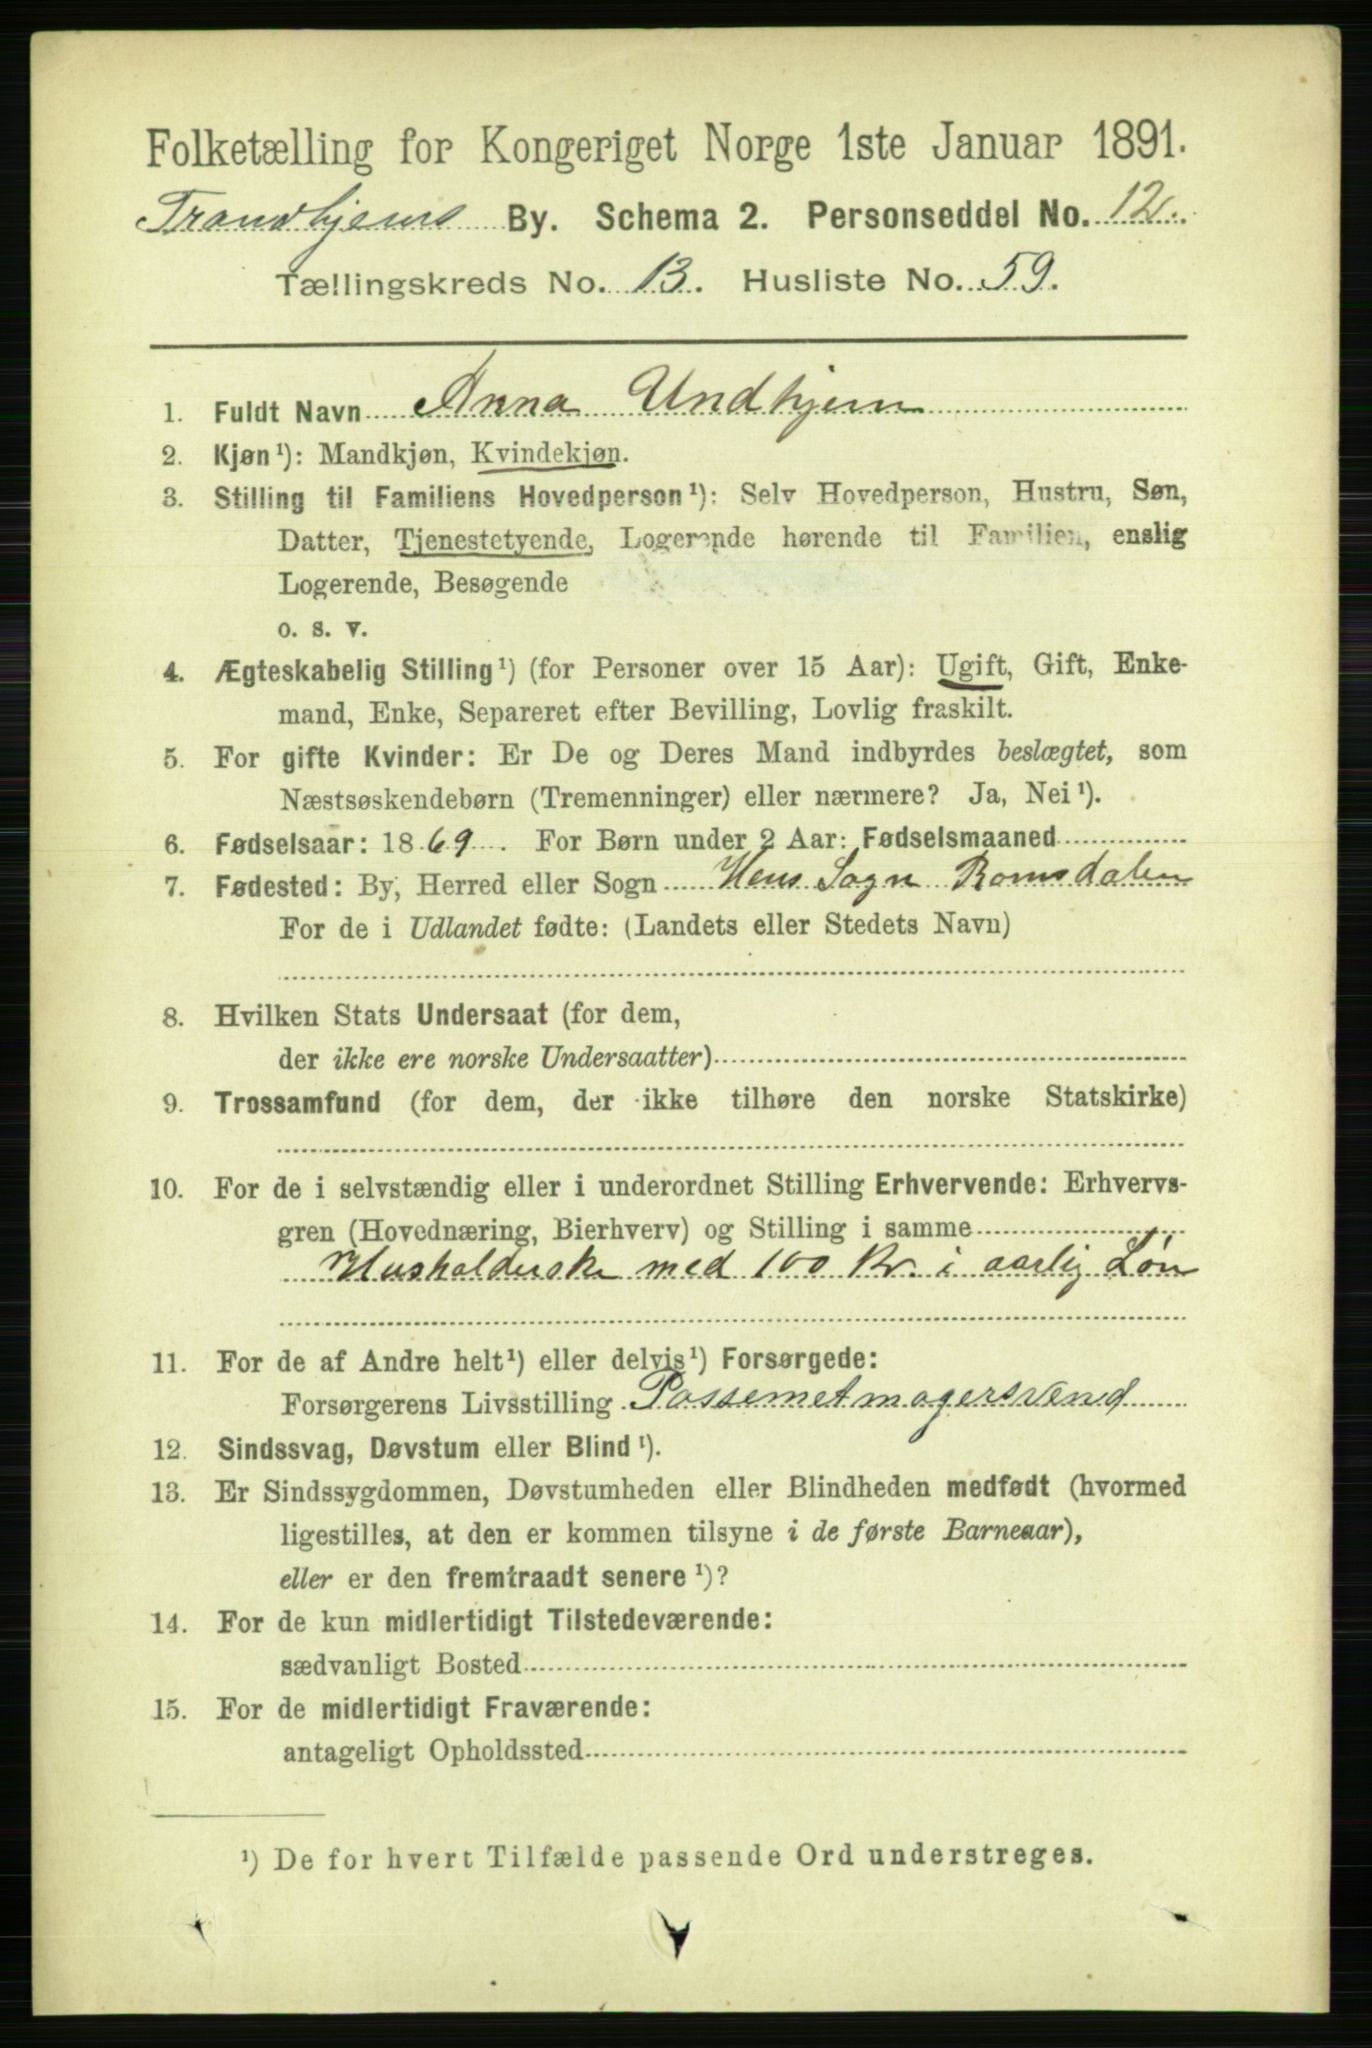 Folketælling for Kongeriget Norge 1ste Januar 1891.
Trondhjems By. Schema 2. Personseddel No. 12.
Tællingskreds No. 13. Husliste No. 59.
1. Fuldt Navn Anna Undhjem
2. Kjøn¹): Mandkjøn, Kvindekjøn.
3. Stilling til Familiens Hovedperson¹): Selv Hovedperson, Hustru, Søn,
Datter, Tjenestetyende, Logerende hørende til Familien, enslig
Logerende, Besøgende
o. s. v.
4. Ægteskabelig Stilling¹) (for Personer over 15 Aar): Ugift, Gift, Enke-
mand, Enke, Separeret efter Bevilling, Lovlig fraskilt.
5. For gifte Kvinder: Er De og Deres Mand indbyrdes beslægtet, som
Næstsøskendebørn (Tremenninger) eller nærmere? Ja, Nei¹).
6. Fødselsaar: 1869. For Børn under 2 Aar: Fødselsmaaned
7. Fødested: By, Herred eller Sogn Hens Sogn Romsdalen
For de i Udlandet fødte: (Landets eller Stedets Navn)
8. Hvilken Stats Undersaat (for dem,
der ikke ere norske Undersaatter)
9. Trossamfund (for dem, der ikke tilhøre den norske Statskirke)
10. For de i selvstændig eller i underordnet Stilling Erhvervende: Erhvervs-
gren (Hovednæring, Bierhverv) og Stilling i samme
Husholderske med 100 Kr. i aarlig Løn
11. For de af Andre helt¹) eller delvis¹) Forsørgede:
Forsørgerens Livsstilling Possemetmagersvend
12. Sindssvag, Døvstum eller Blind¹).
13. Er Sindssygdommen, Døvstumheden eller Blindheden medfødt (hvormed
ligestilles, at den er kommen tilsyne i de første Barneaar),
eller er den fremtraadt senere¹)?
14. For de kun midlertidigt Tilstedeværende:
sædvanligt Bosted
15. For de midlertidigt Fraværende:
antageligt Opholdssted
¹) De for hvert Tilfælde passende Ord understreges.